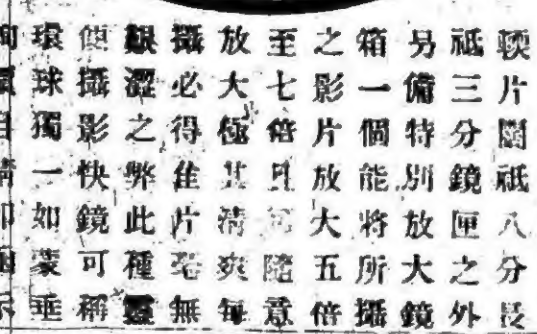 片闊祇八分長
祇三分鏡匣之外
另備特別放大鏡
箱一個能將所攝
之影片放大五倍
至七倍且可隨意
放大極其清爽每
攝必得佳片毫無
艱澀之弊此種靈
便攝影快鏡可稱
環球獨一如蒙垂